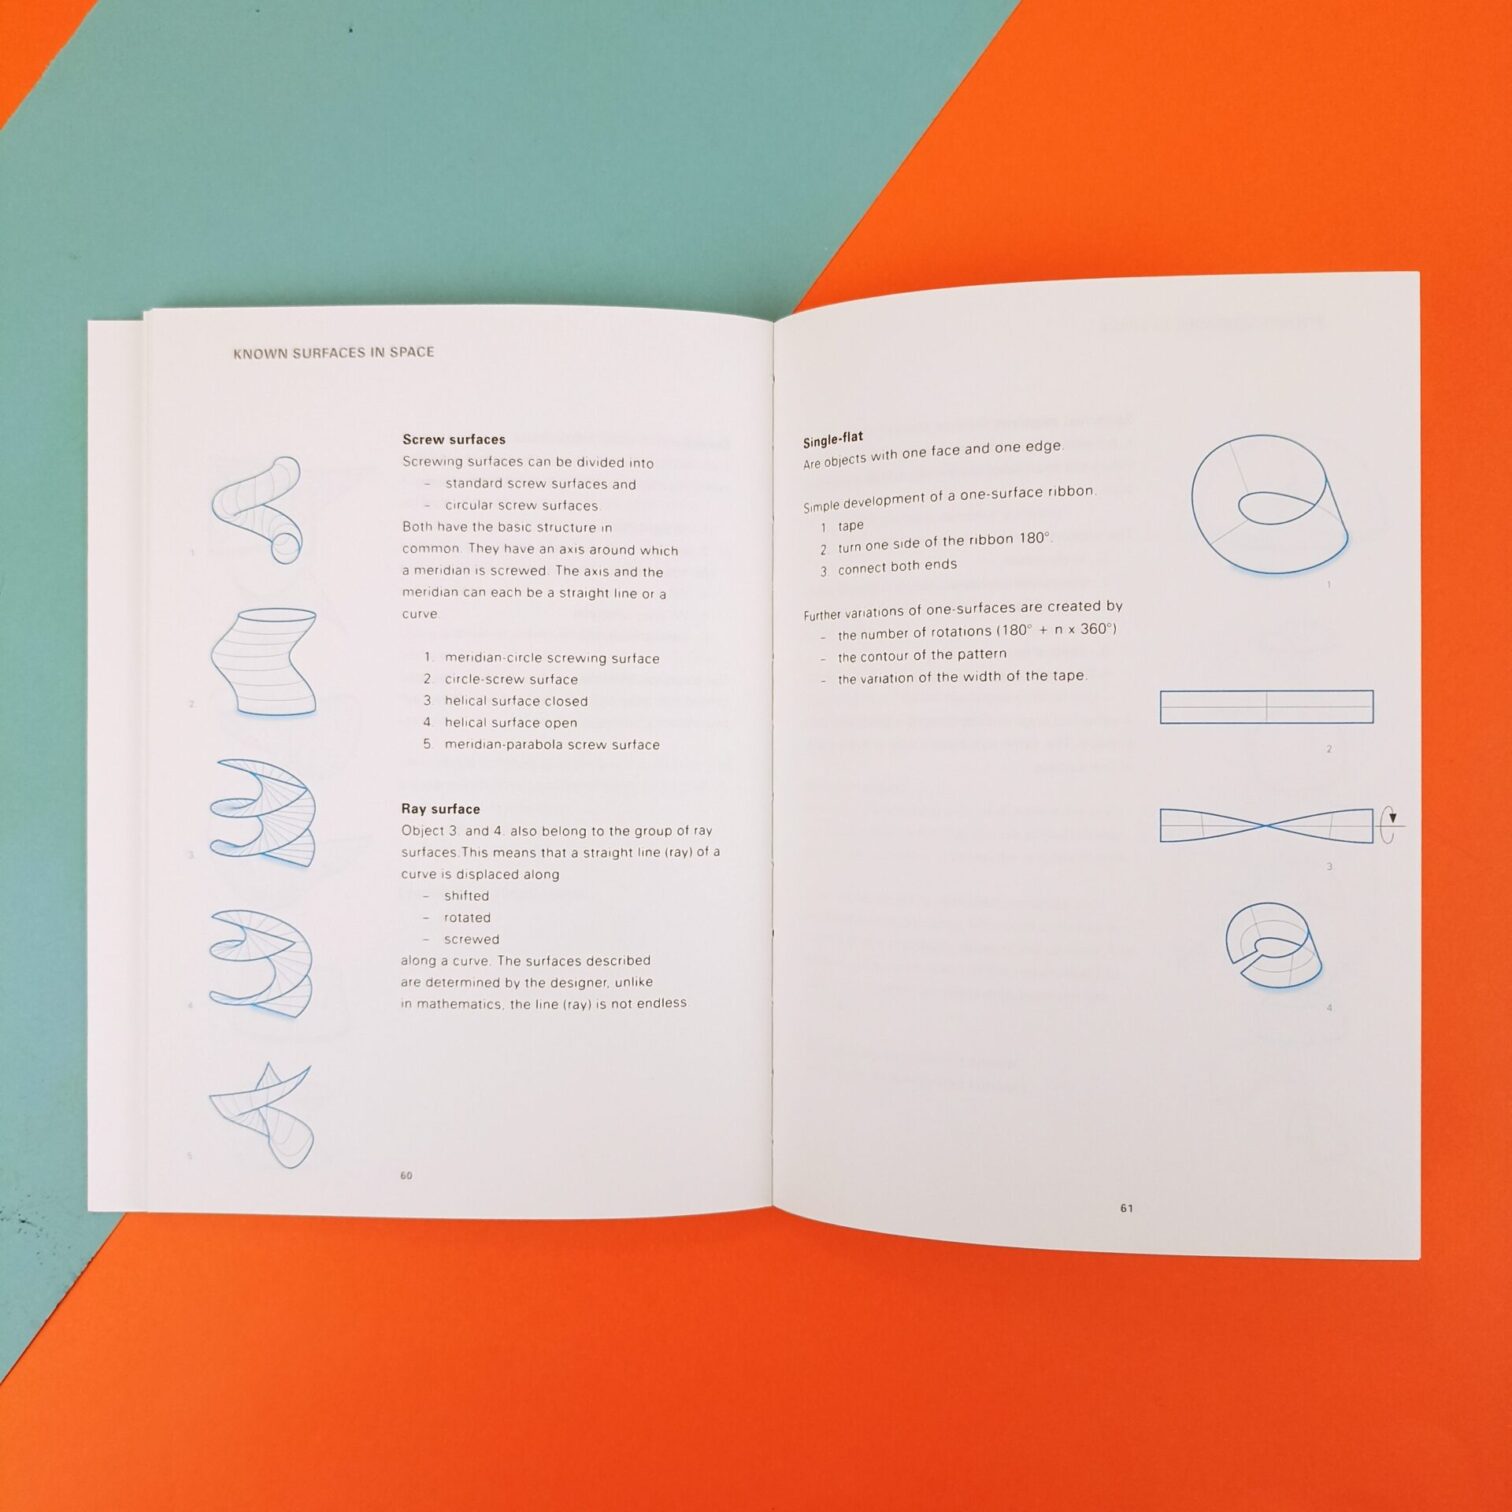 KNOWN SURFACES IN SPACE
Screw surfaces
Screwing surfaces can be divided into
- standard screw surfaces and
- circular screw surfaces.
Both have the basic structure in
common. They have an axis around which
a meridian is screwed. The axis and the
meridian can each be a straight line or a
curve.
1. meridian-circle screwing surface
2. circle-screw surface
3. helical surface closed
4. helical surface open
5. meridian-parabola screw surface
Ray surface
Object 3. and 4. also belong to the group of ray
surfaces.This means that a straight line (ray) of a
curve is displaced along
- shifted
- rotated
- screwed
along a curve. The surfaces described
are determined by the designer, unlike
in mathematics, the line (ray) is not endless.
1
2
3
4
5
60
Single-flat
Are objects with one face and one edge.
Simple development of a one-surface ribbon.
1 tape
2. turn one side of the ribbon 180°.
3. connect both ends
Further variations of one-surfaces are created by
- the number of rotations (180° + n x 360°)
- the contour of the pattern
- the variation of the width of the tape.
1
2
3
4
61